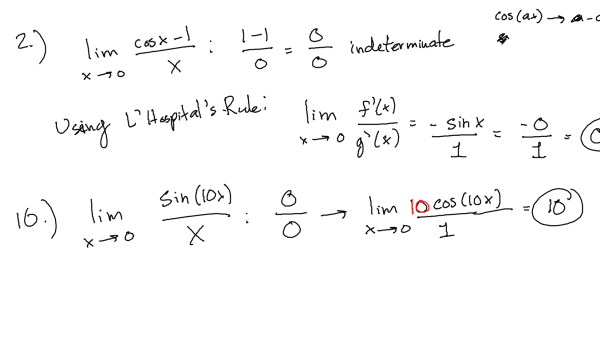 cos(ax) →
2.) lim x→0 cosx-1 / x : 1-1 / 0 = 0 / 0 indeterminate
Using L'Hospital's Rule: lim x→0 f'(x) / g'(x) = -sinx / 1 = -0 / 1 =
10.) lim x→0 sin(10x) / x : 0 / 0 → lim x→0 10cos(10x) / 1 = 10